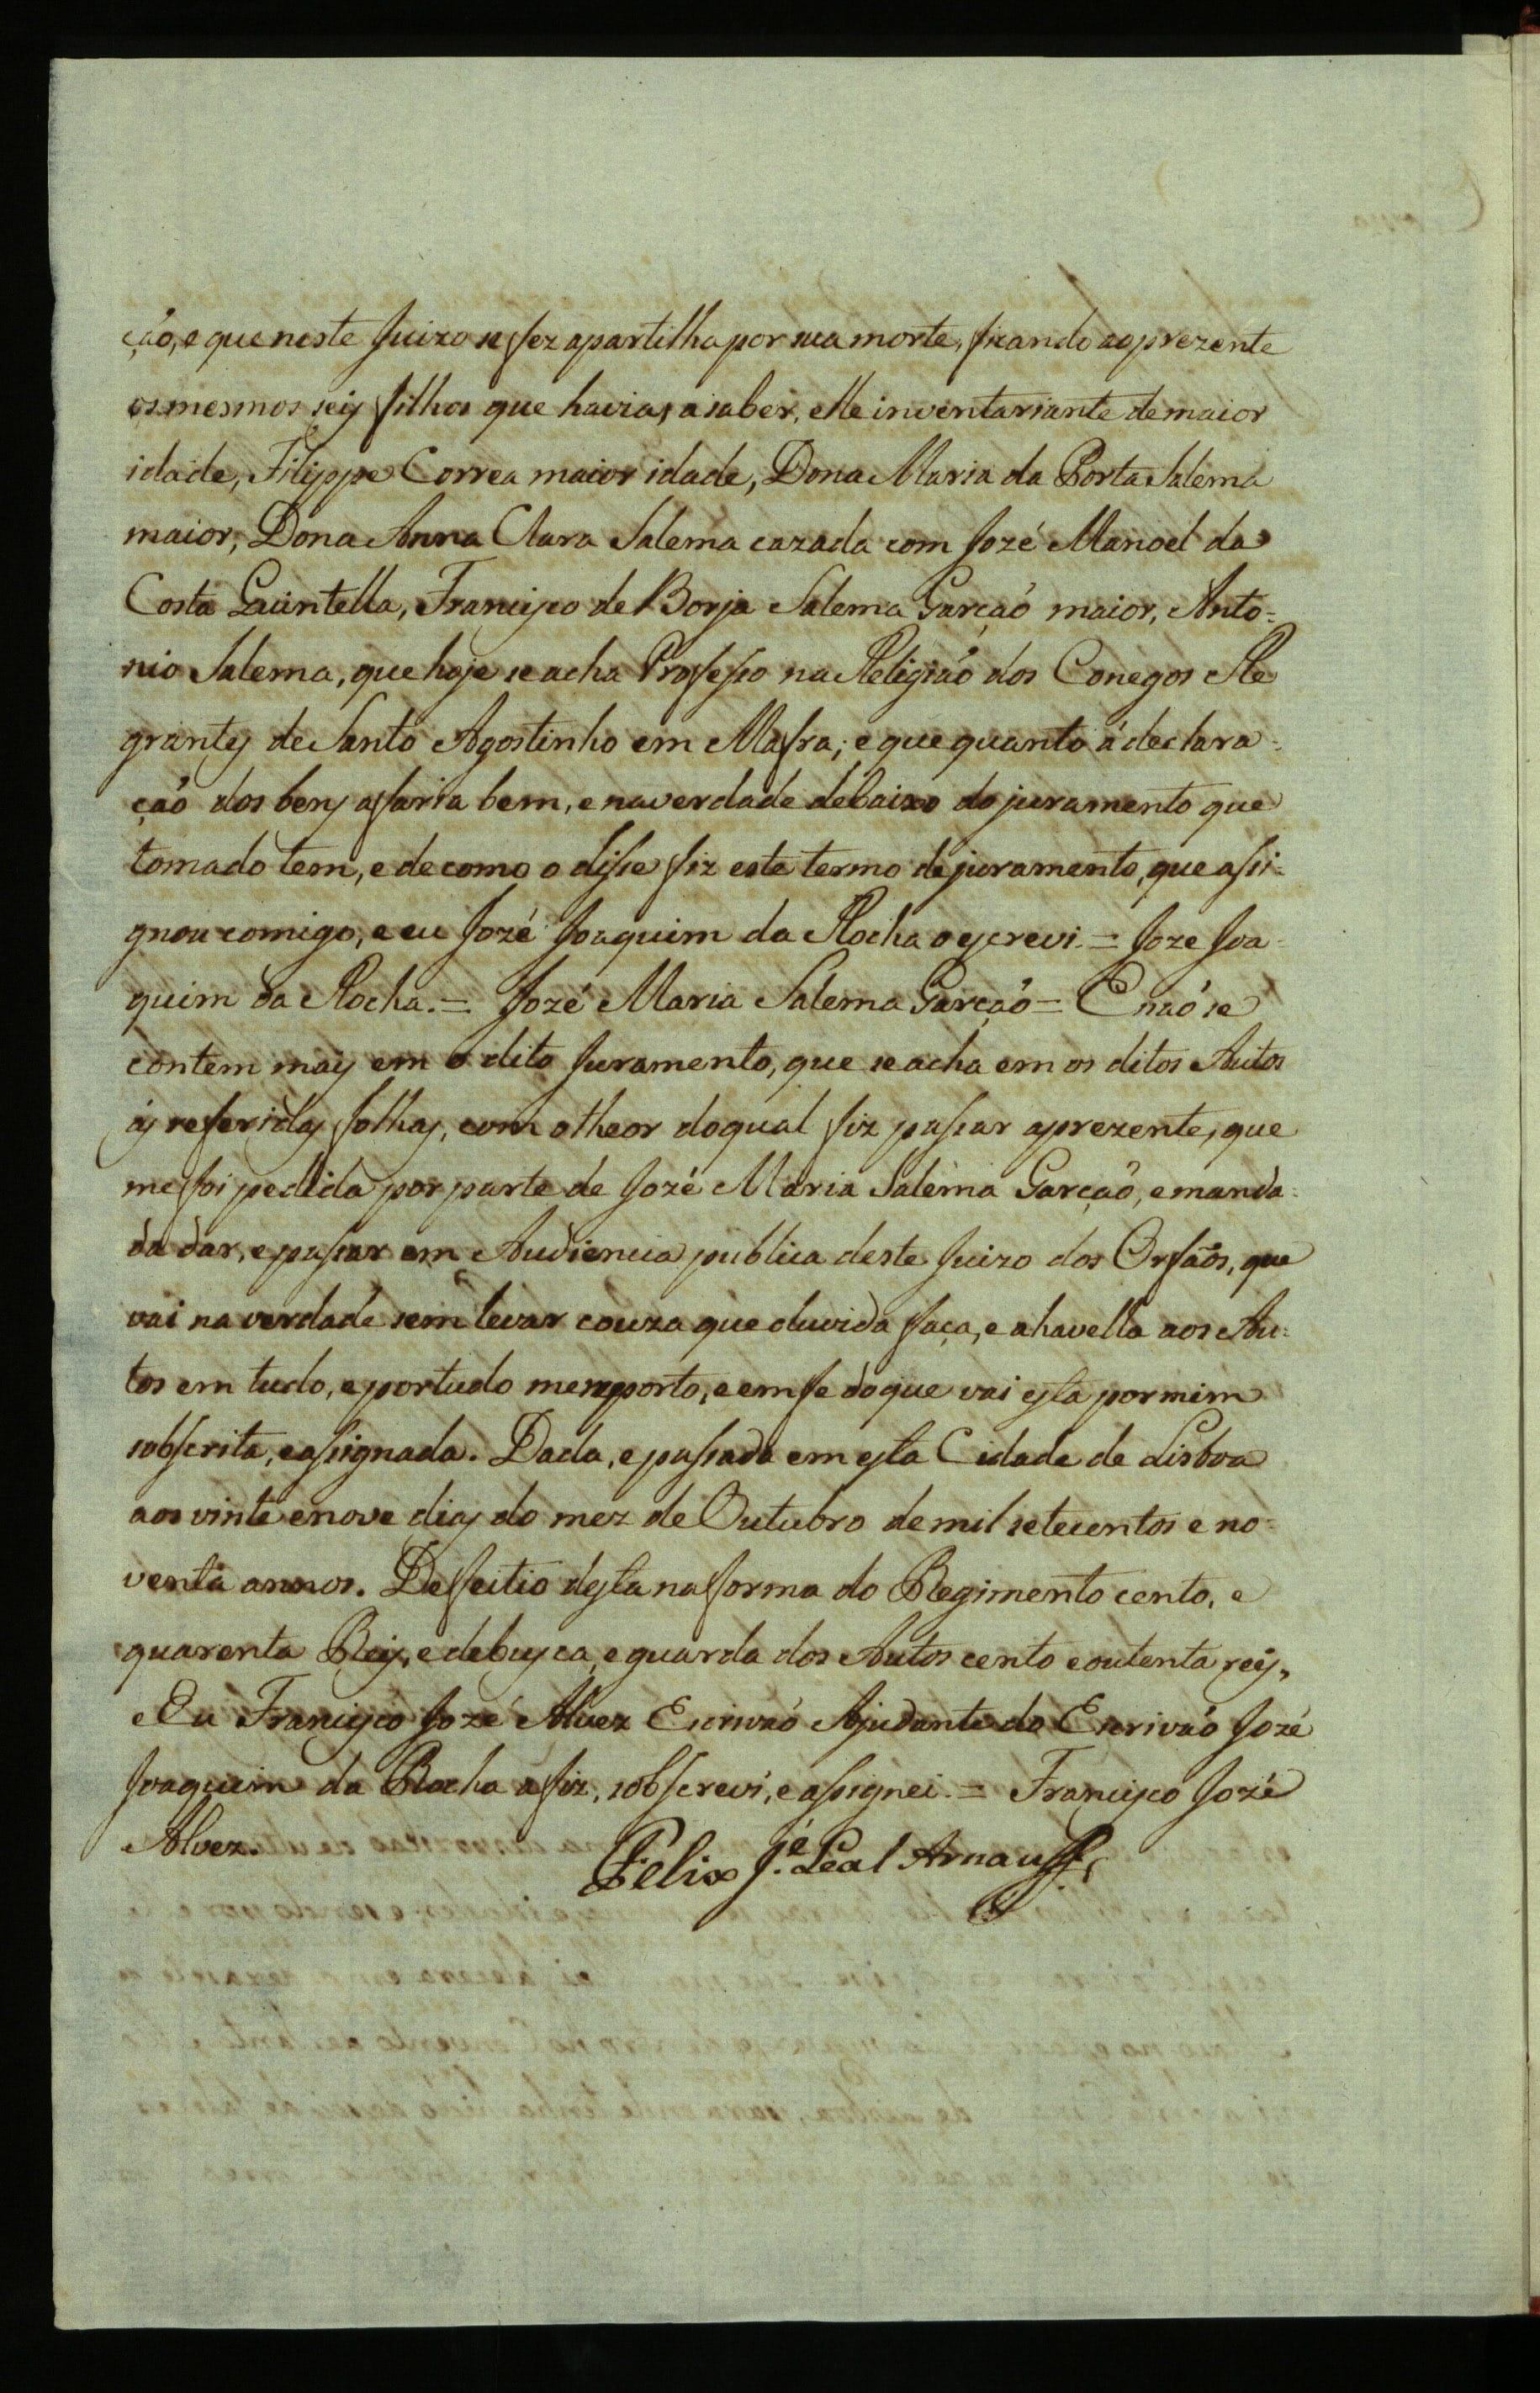 ção, e que neste Juizo se fez apartilha por sua morte, ficando ao prezente
os mesmos seis filhos que havia, a saber, elle inventariante de maior
idade, Filippe Correa maior idade, Dona Maria da Porta Salema
maior, Dona Anna Clara Salema cazada com Jozé Manoel da
Costa Quintella, Francisco de Borja Salema Garçaõ maior, Anto=
nio Salema, que hoje se acha Professo na Religiaõ dos Conegos Re
grantes de Santo Agostinho em Mafra; e que quanto á declara=
çaõ dos bens a faria bem, e na verdade debaixo do juramento que
tomado tem, e de como o disse fiz este termo de juramento, que assi=
gnou comigo, e eu Jozé Joaquim da Rocha o escrevi. = Joze Joa=
quim da Rocha. = Jozé Maria Salema Garçaõ = E naõ se
contem mais em o dito Juramento, que se acha em os ditos Autos
ás referidas folhas, com o theor do qual fiz passar aprezente, que
me foi pedida por parte de Jozé Maria Salema Garçaõ, e manda=
da dar, e passar em Audiencia publica deste Juizo dos Orfaõs, que
vai na verdade sem levar couza que duvida faça, e a havella aos Au=
tos em tudo, e por tudo me reporto, e em fe do que vai esta por mim
sobscrita, e assignada. Dada, e passada em esta Cidade de Lisboa
aos vinte e nove dias do mez de Outubro de mil setecentos e no=
venta annos. De feitio desta na forma do Regimento cento, e
quarenta Reis, e de busca, e guarda dos Autos cento e outenta reis,
Eu Francisco Jozé Alvez Escrivaõ Ajudante do Escrivaõ Jozé
Joaquim da Rocha a fiz, sobscrevi, e assignei. = Francisco Jozé
Alvez.
Felix J.é Leal Arnaut